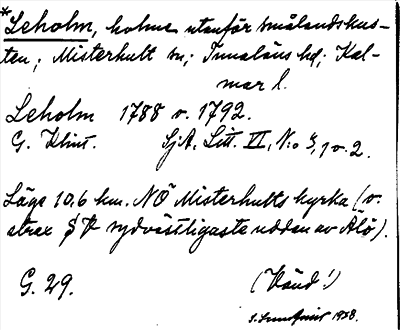 *Leholm, holme utanför smålandskus-
ten; Misterhult sn; Tunaläns hd; Kal-
mar l.
Leholm 1788 o. 1792.
G. Klint. SjA. Litt. VI, N:o 3, 1 o. 2.
Läge 10,6 km. NÖ Misterhults kyrka (o.
strax sydvästligaste udden av Älö).
G. 29. (Vänd!)
1938.